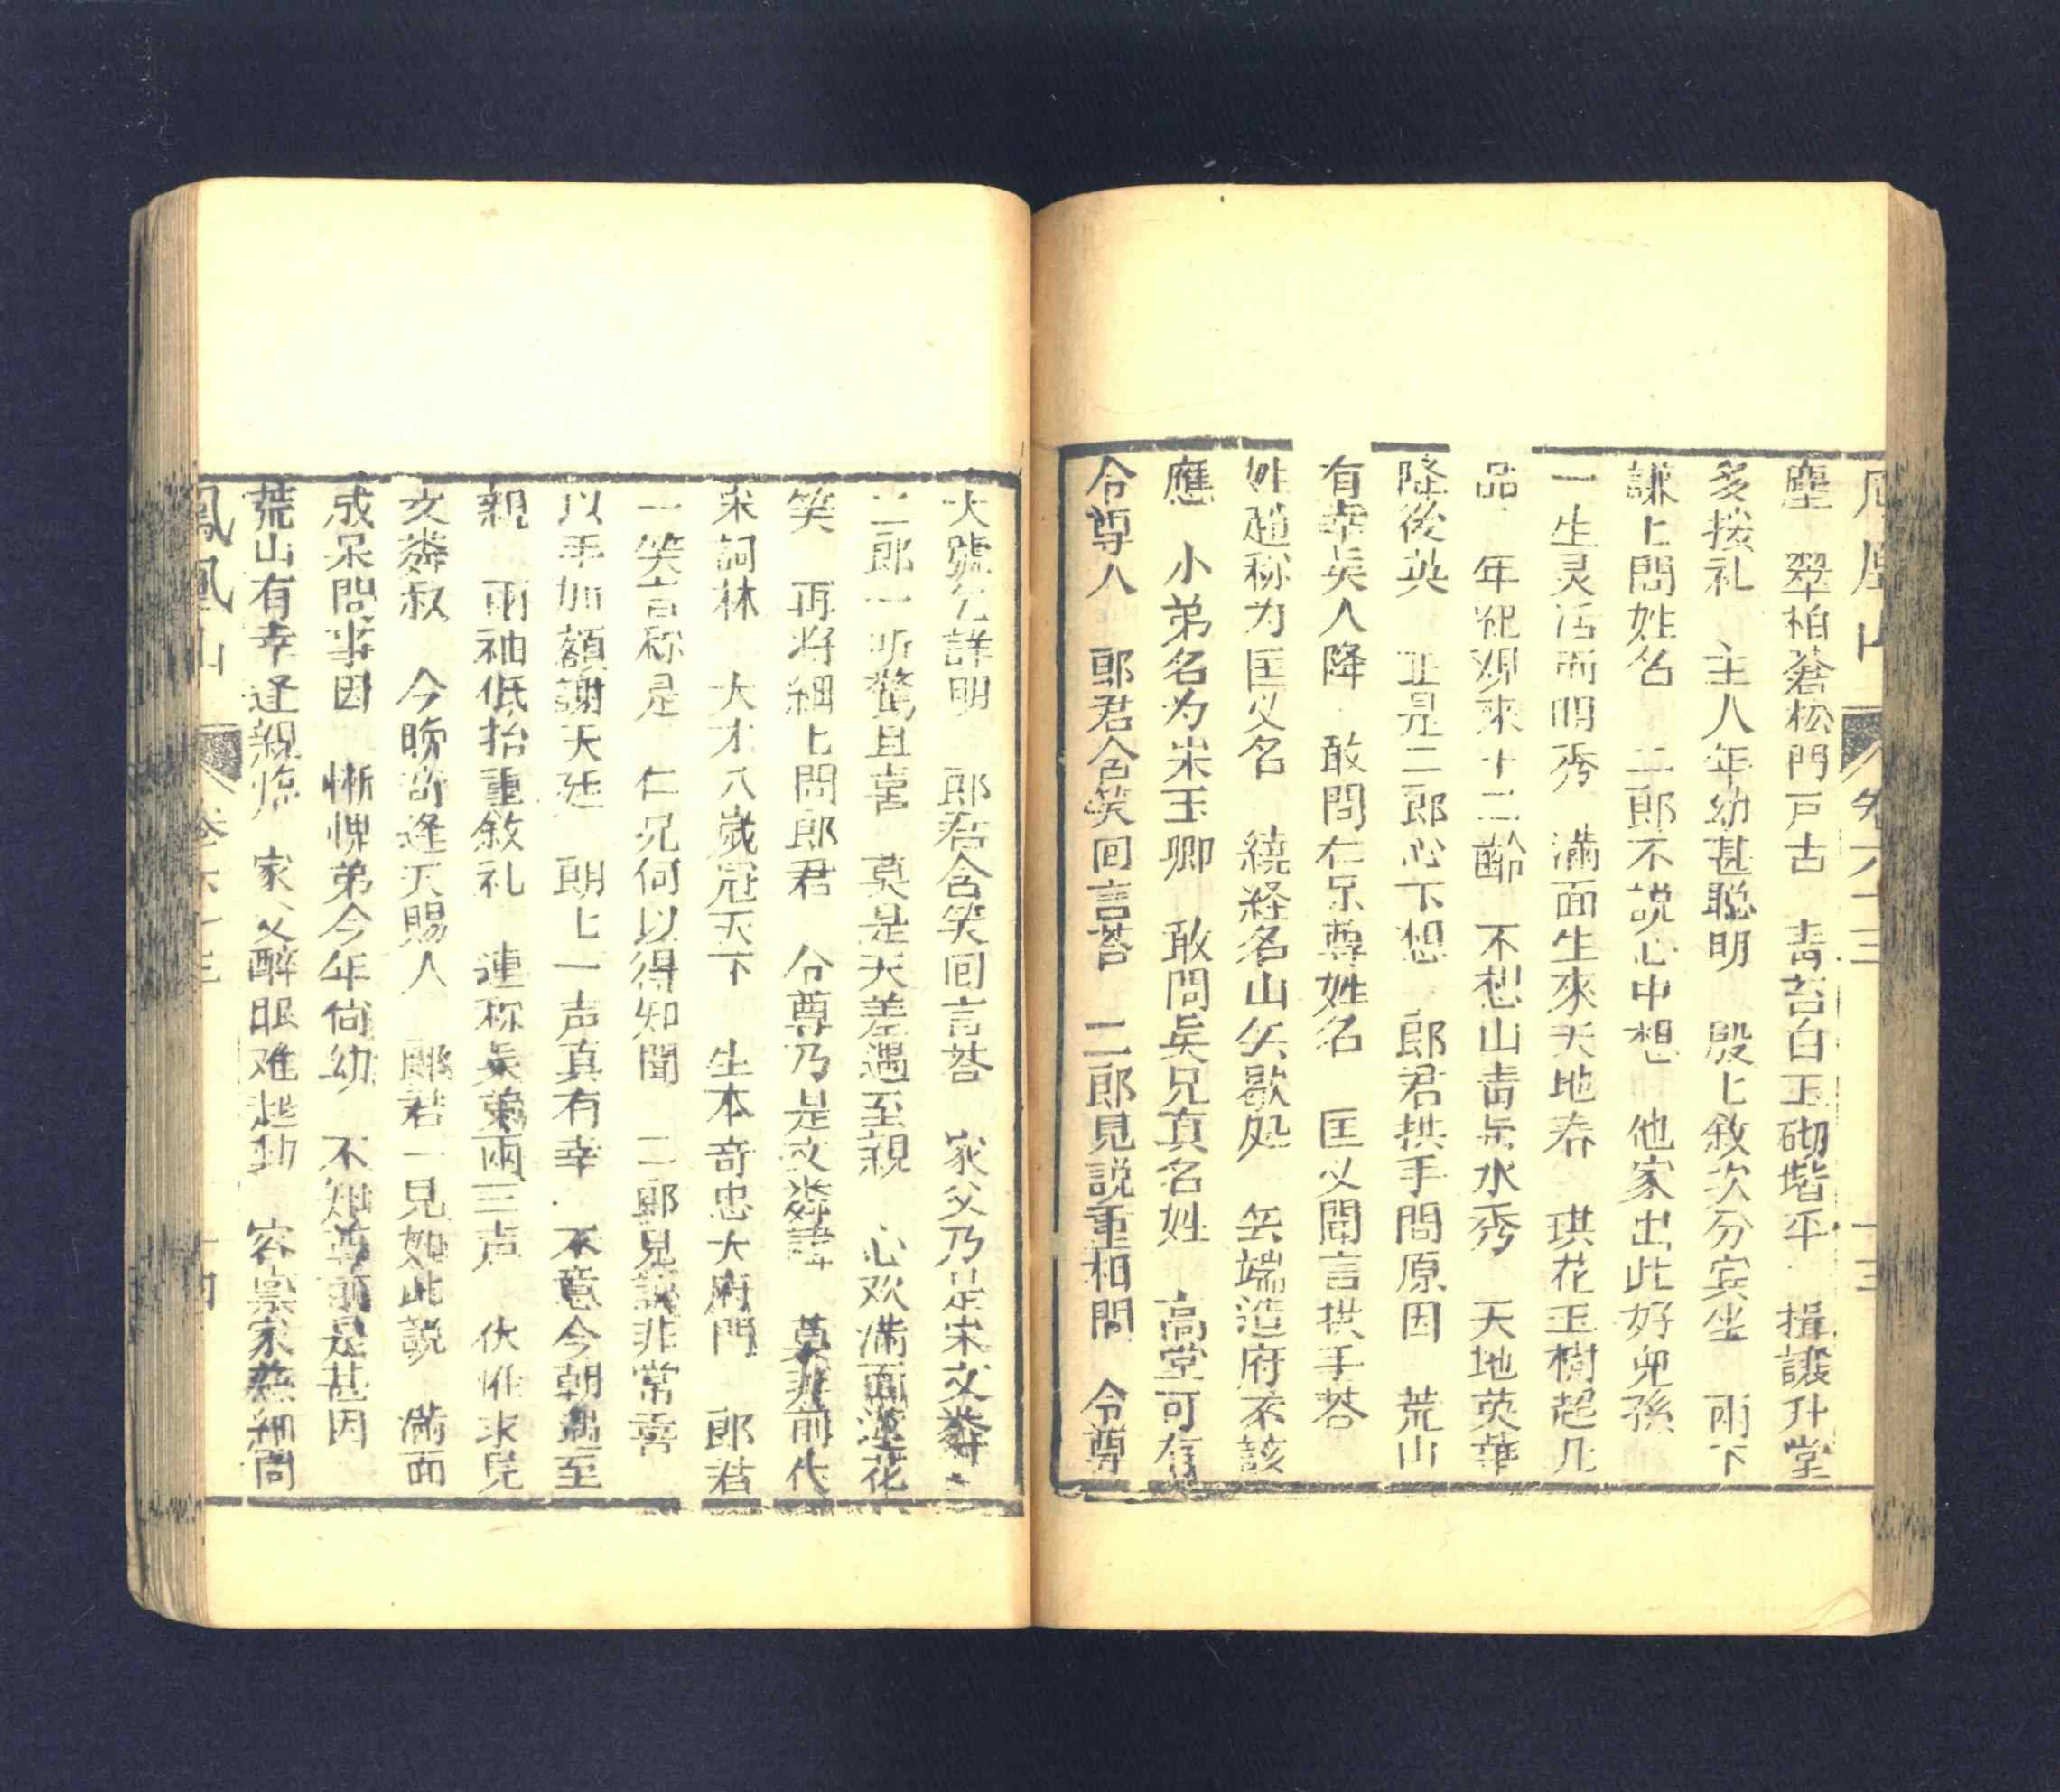 鳳凰山 卷六十三 十三
塵 翠柏蒼松門戸古 青苔白玉砌堦平 揖讓升堂
多接礼 主人年幼甚聪明 殷匕敘次分宾坐 兩下
謙匕問姓名 二郎不説心中想 他家出此好兒孫
一生灵活而明秀 满面生來天地春 琪花玉樹起凡
品 年紀观來十二齡 不想山青与水秀 天地英華
降後英 正是二郎心下想 郎君拱手問原因 荒山
有幸吳人降 敢問仁兄尊姓名 匡义聞言拱手荅
姓趙称为匡义名 繞経名山矢歇处 矢端造府不該
應 小弟名为米玉卿 敢問吳兄真名姓 高堂可有
令尊人 郎君含笑回言荅 二郎見説重相問 令尊
大號乞詳明 郎君含笑回言荅 家父乃是宋文粦
二郎一听驚且喜 莫是天差遇至親 心欢满面蓮花
笑 再将細匕問郎君 令尊乃是文粦諱 莫非前代
宋詞林 大才八歲冠天下 生本奇忠大府門 郎君
一笑言称是 仁兄何以得知聞 二郎見説非常喜
以手加額謝天廷 朗匕一声真有幸 不意今朝遇至
親 兩袖低抬重敘礼 連称吳弟兩三声 伏惟求見
文粦叔 今晚奇逢天賜人 郎君一見如此説 满面
成呆問事因 慚愧弟今年尙幼 不知尊前是甚因
荒山有幸逢親 家父醉眼难起動 容禀家慈細問
鳳凰山 卷六十三 十四